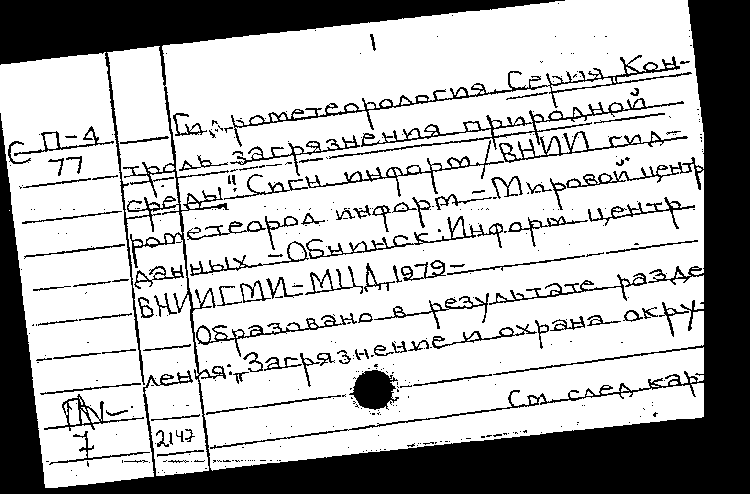 1
Гидрометеорология. Серия „Кон-
С П-4
77
троль загрязнения природной
среды": Сигн. информ. / ВНИИ гид-
рометеорол информ. - Мировой центр
данных. - Обнинск: Информ центр
ВНИИГМИ-МЦД, 1979-
Образовано в результате разде
ления: „Загрязнение и охрана окру-
См. след кар-
7
2147